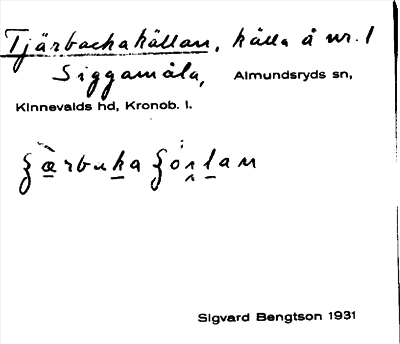 Tjärbackakällan, källa å nr. 1
Siggamåla, Almundsryds sn,
Kinnevalds hd, Kronob. l.
Sigvard Bengtson 1931